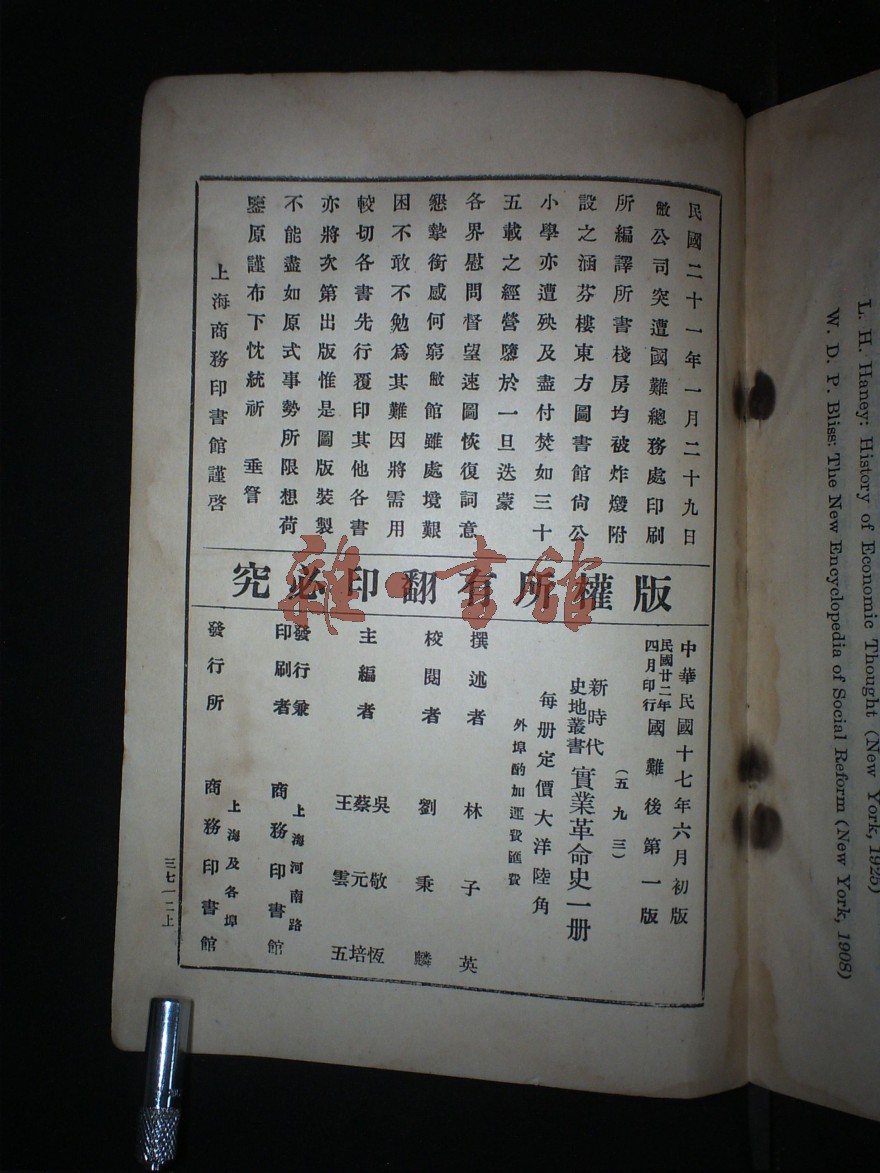 民國二十一年一月二十九日
敝公司突遭國難總務處印刷
所編譯所書棧房均被炸燬附
設之涵芬樓東方圖書館尙公
小學亦遭殃及盡付焚如三十
五載之經營隳於一旦迭蒙
各界慰問督望速圖恢復詞意
懇摯銜感何窮敝館雖處境艱
困不敢不勉爲其難因將需用
較切各書先行覆印其他各書
亦將次第出版惟是圖版裝製
不能盡如原式事勢所限想荷
鑒原謹布下忱統祈 垂詧
上海商務印書館謹啓
版權所有翻印必究
中華民國十七年六月初版
民國廿二年四月印行國難後第一版
(五九三)
新時代史地叢書 實業革命史一册
每册定價大洋陸角
外埠酌加運費匯費
撰述者 林子英
校閱者 劉秉麟
主編者 吳敬恆 蔡元培 王雲五
發行兼印刷者 上海河南路 商務印書館
發行所 上海及各埠 商務印書館
三七一二上
雜·書館
L. H. Haney: History of Economic Thought (New York, 1925)
W. D. P. Bliss: The New Encyclopedia of Social Reform (New York, 1908)